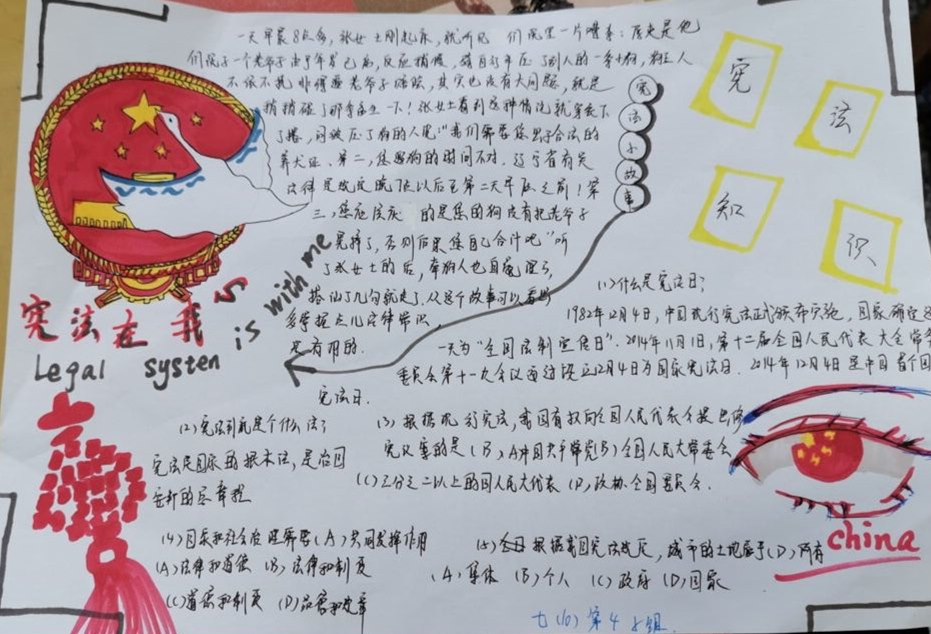 一天早晨8点多,张女士刚起床,就听见 们院里一片嘈杂:原来是他
们院子一个老爷子由于年岁已高,反应稍慢,骑自行车压了别人的一条小狗,狗主人
不依不挠非得要老爷子赔偿,其实也没有大问题,就是
稍稍碰了那畜生一下!张女士看到这种情况就穿衣下
了楼,问被压了狗的人说:“我们需要您出示合法的
养犬证、第二,您遛狗的时间不对,辽宁省有关
法律是规定晚7点以后至第二天早 之前!第
三,您应该庆 的是您的狗没有把老爷子
晃摔了,否则后果您自己合计吧”听
了张女士的后,养狗人也自 理亏,
搭讪了几句就走了.从这个故事可以看出
多掌握点儿法律常识,
是有用的.
宪
法
小
故
事
宪
法
知
识
宪法在我
Legal systen is with me
(1)什么是宪法日?
1982年12月4日,中国现行宪法正式颁布实施,国家确定这
一天为“全国法制宣传日”.2014年11月1日,第十二届全国人民代表大会常务
委员会第十一次会议通过设立12月4日为国家宪法日.2014年12月4日是中国首个国
宪法日.
(2)宪法到底是个什么法?
宪法是国家的根本法,是治国
安邦的总章程
(3)根据现行宪法,我国有权向全国人民代表会提出修
宪议案的是(B)、A中国共产党党(B)全国人民大常委会
(C)三分之二以上的国人民大代表 (D)政协全国委员会.
(4)国家和社会治理需要(A)共同发挥作用
(A)法律和道德 (B)法律和制度
(C)道德和制度 (D)品德和规章
(5) 根据我国宪法规定,城市的土地属于(D)所有
(A)集体 (B)个人 (C)政府 (D)国家
china
七(10)第4小组